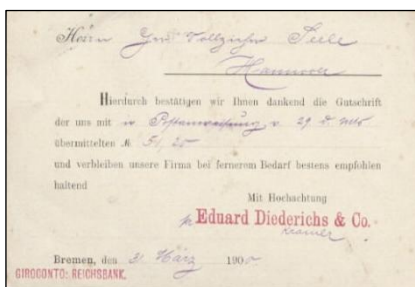 Herrn Ger. Vollzieher Seele
Hannover
Hierdurch bestätigen wir Ihnen dankend die Gutschrift
der uns mit Postanweisung v. 29. d. Mts
übermittelten M 51,20
und verbleiben unsere Firma bei fernerem Bedarf bestens empfohlen
haltend
Mit Hochachtung
Eduard Diederichs & Co.
Kramer
Bremen, den 31 März 190
GIROCONTO: REICHSBANK.